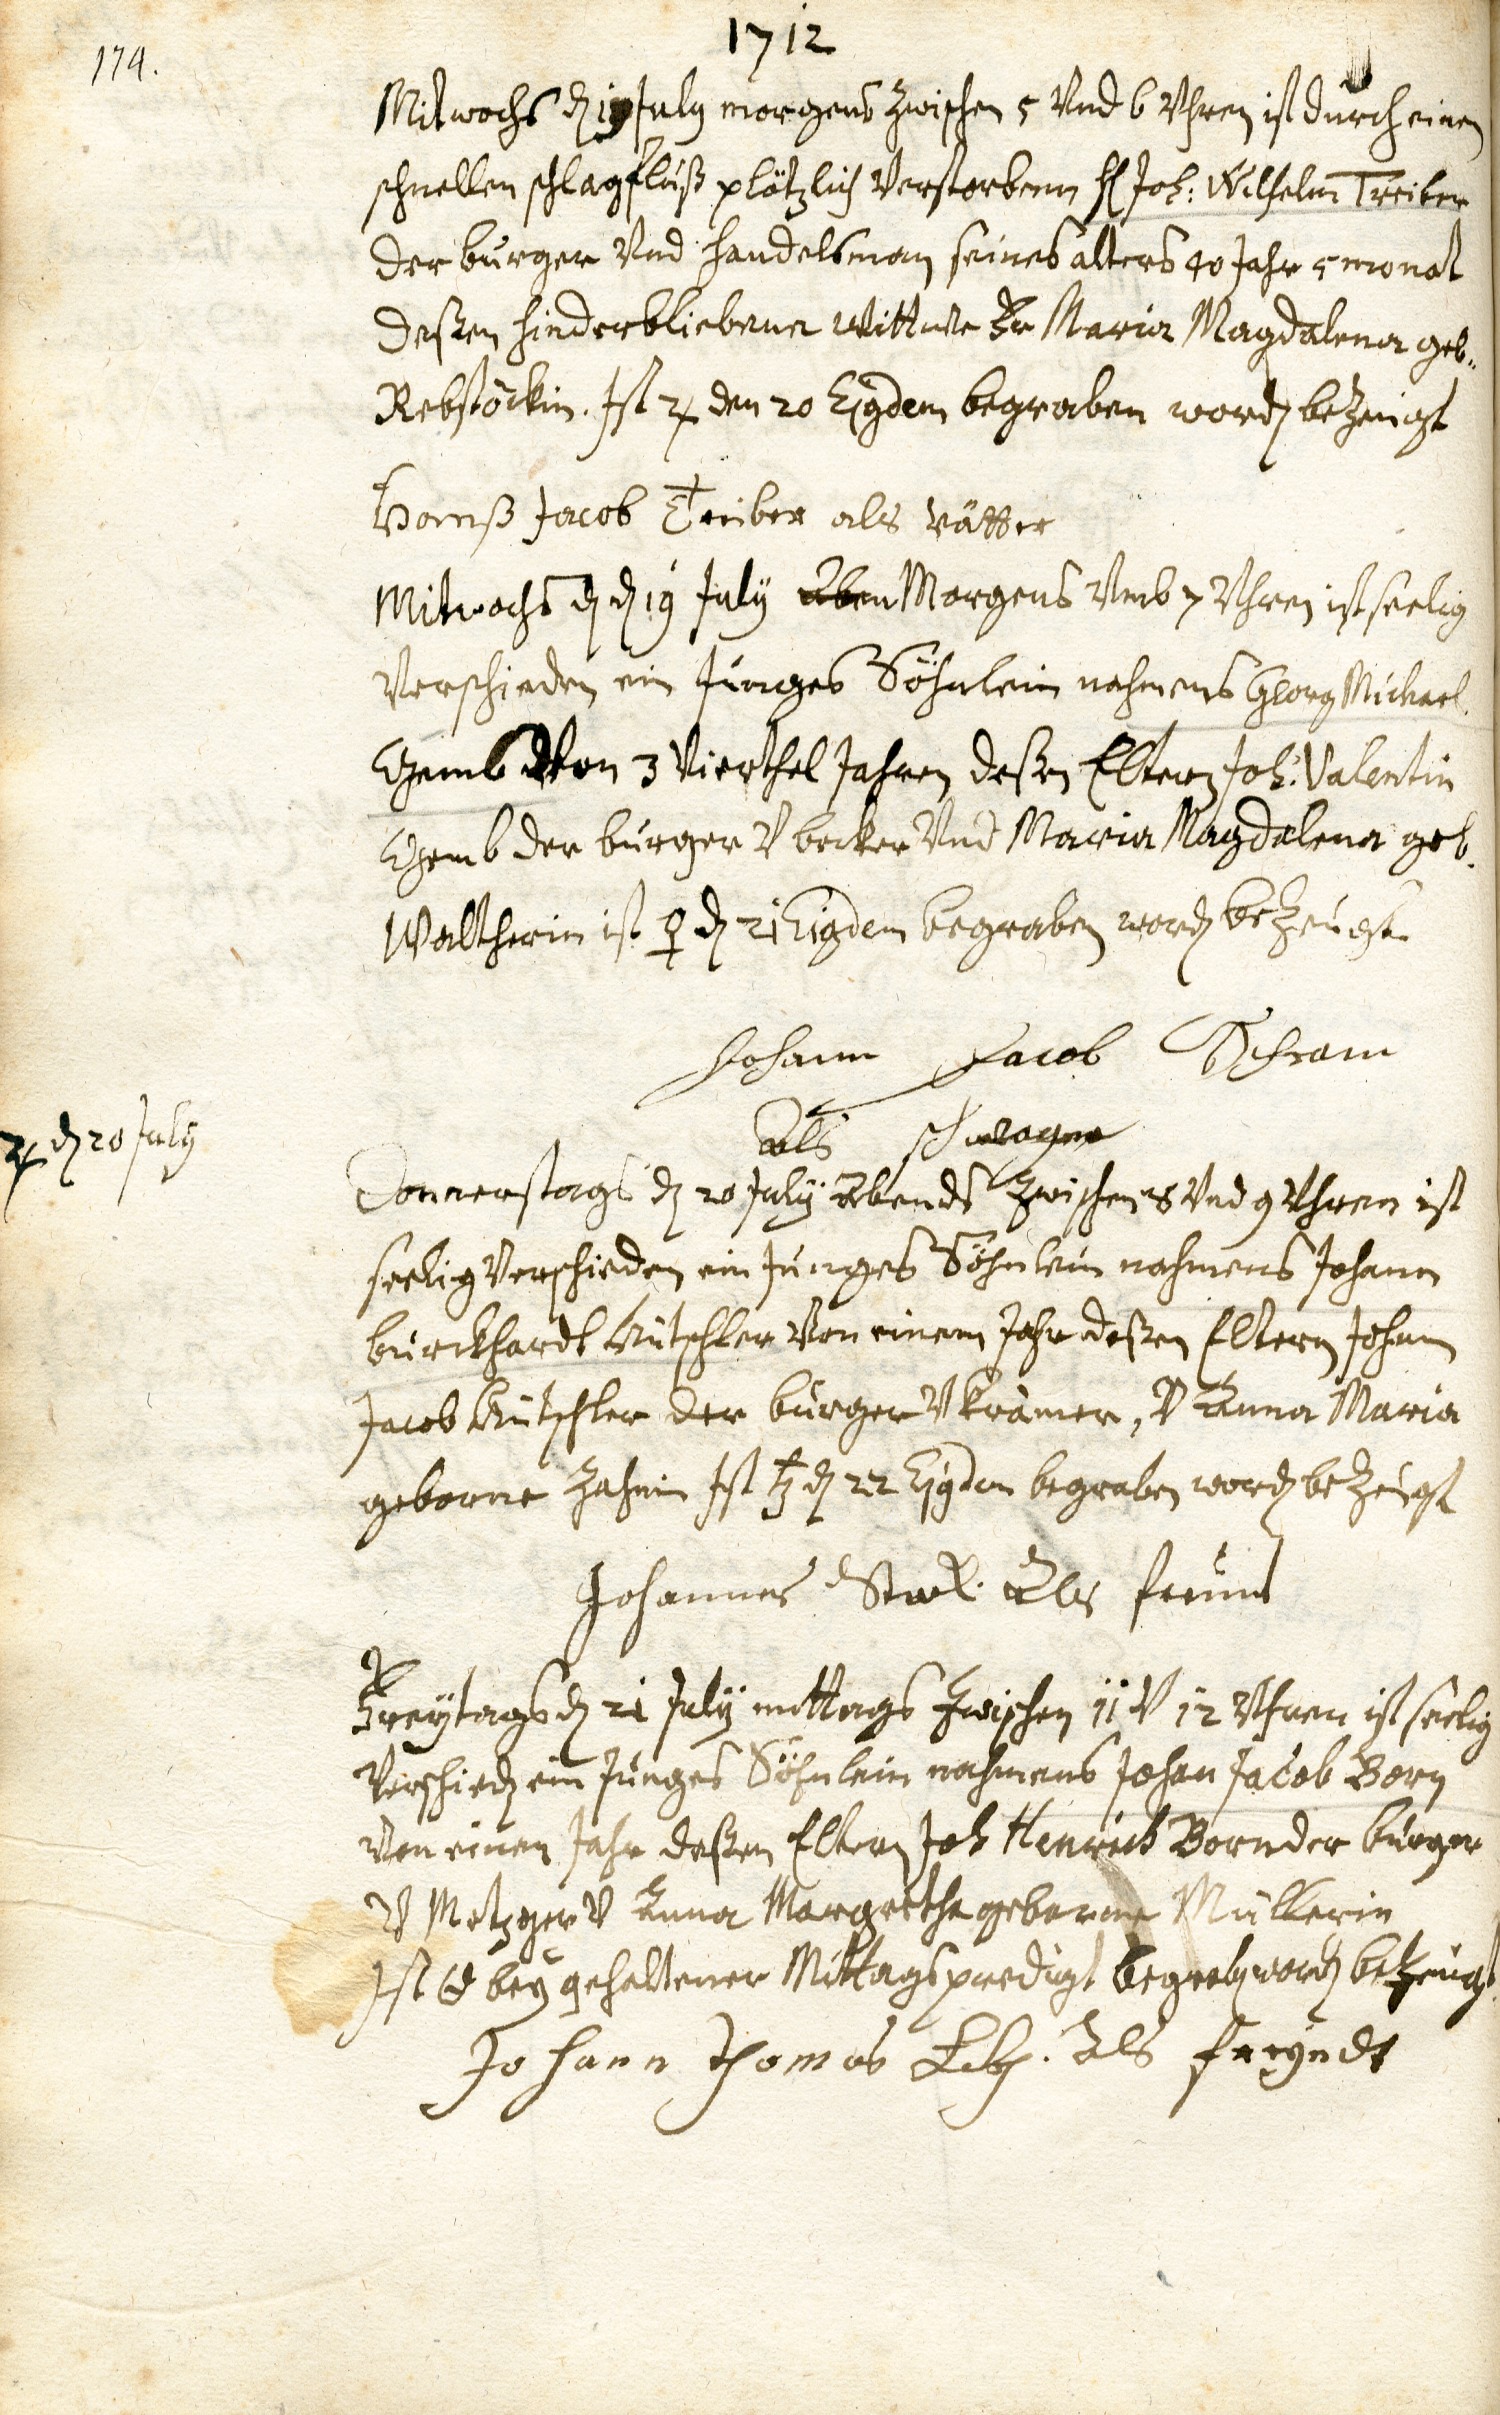 1712
174.
Mitwochs d 19 July morgens zwischen 5 Vnd 6 Vhren ist durch einen
schnellen schlagfluß plötzlich Verstorbenn H Joh: Wilhelm Treiber
der burger Vnd handelsman seines alters 40 Jahr 5 monat
deßen hinderbliebene Wittwe Fr Maria Magdalena geb.
Rebstöckin. Ist ♃ den 20 Ejgdem begraben word bezeugt
Hannß Jacob Treiber als Vätter
Mitwochs d d 19 July Aben Morgens Vmb 7 Vhren ist seelig
Verschieden ein Junges Söhnlein nahmens Georg Michael
Von 3 Vierthel Jahren deßen Eltern Joh. Valentin
der burger V becker Vnd Maria Magdalena geb.
Waltherin ist ♀ d 21 Eigdem begraben word bezeugt
Johann Jacob Schram
Als schwager
♃ d 20 July
Donnerstags d 20 July Abends zwischen 8 Vnd 9 Vhren ist
seelig Verschieden ein Junges Söhnlein nahmens Johann
burckhardt Kutschler Von einem Jahr deßen Eltern Johann
Jacob Kutschler der burger V Kramer, V Anna Maria
geborne Zahnin Ist ♄ d 22 Ejgdem begraben word bezeugt
Johannes Als freund
Freytags d 21 July mittags Zwischen 11 V 12 Vhren ist seelig
Verschied ein Junges Söhnlein nahmens Johan Jacob Born
Von einem Jahr deßen Eltern Joh Henrich Born der burger
V Metzger V Anna Margretha geborne Müllerin
Ist bey gehaltener Mittagspredigt begrab word bezeugt
Johann Thomas Als freyndt